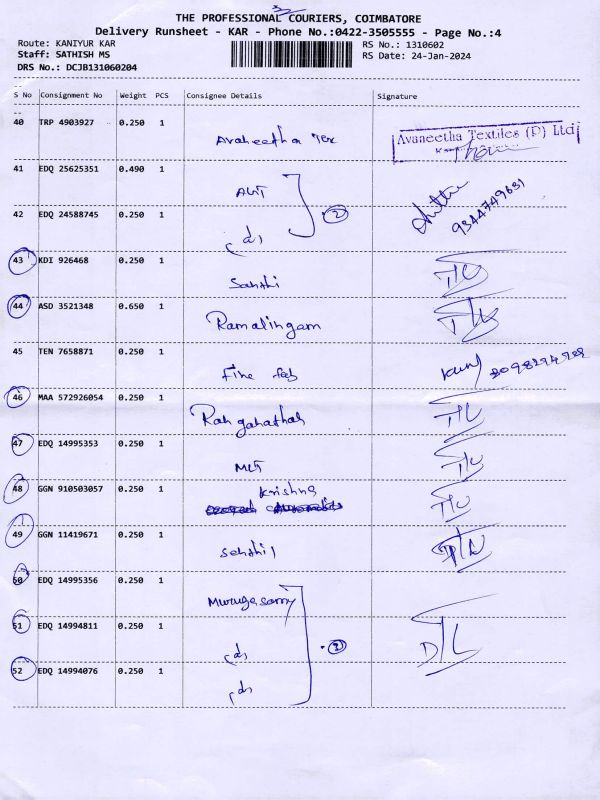 THE PROFESSIONAL COURIERS, COIMBATORE
Delivery Runsheet - KAR - Phone No.:0422-3505555 - Page No.:4
Route: KANIYUR KAR RS No.: 1310602
Staff: SATHISH MS RS Date: 24-Jan-2024
DRS No.: DCJB131060204
S No Consignment No Weight PCS Consignee Details Signature
40 TRP 4903927 0.250 1 Avaneetha Tex Avaneetha Textiles (P) Ltd
41 EDQ 25625351 0.490 1
2 9344749631
42 EDQ 24588745 0.250 1
43 KDI 926468 0.250 1 Santhi
44 ASD 3521348 0.650 1 Ramalingam
45 TEN 7658871 0.250 1 Fine Fab
46 MAA 572926054 0.250 1 Ranganathan
47 EDQ 14995353 0.250 1
48 GGN 910503057 0.250 1 Krishna
49 GGN 11419671 0.250 1 Senthil
50 EDQ 14995356 0.250 1 Murugasamy
51 EDQ 14994811 0.250 1
52 EDQ 14994076 0.250 1